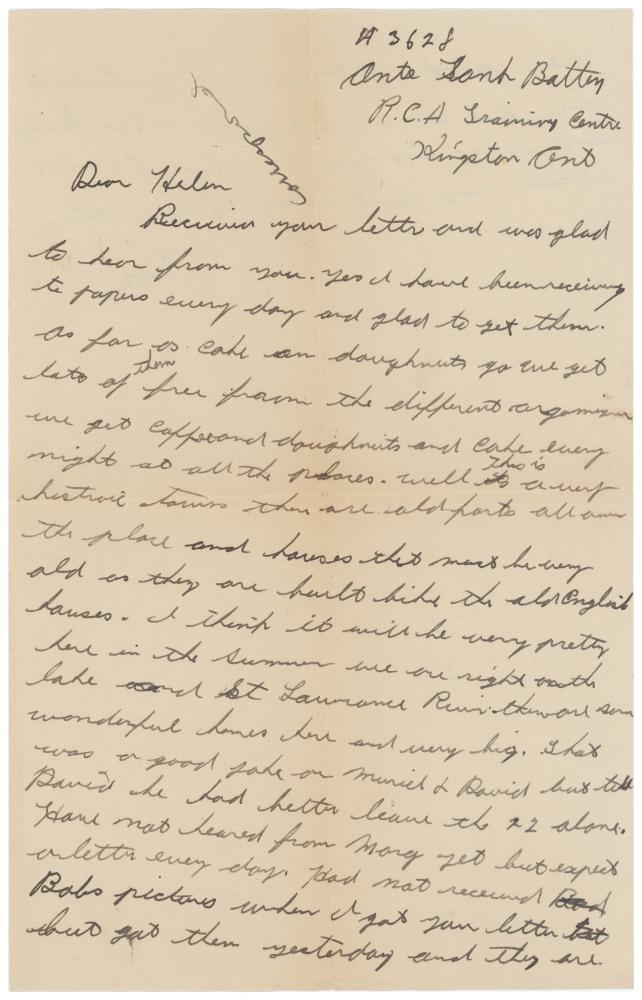 A 3628
Onte Tank Battery
R.C.A Training Centre
Kingston Ont
Dear Helen
Received your letter and was glad
to hear from you. Yes I have been receiving
te papers every day and glad to get them.
As far as cake an doughnuts go we get
lots of them free from the different
we get coffee and doughnuts and cake every
night at all the places. well this is a very
histroic town there are old forts all over
the place and houses that must be very
old as they are built like the old English
houses. I think it will be very pretty
here in the summer we are right on the
lake and St Lawrance River. there are some
wonderful homes here and very big. That
was a good joke on Muriel & David but tell
David he had better leave the 22 alone.
Have not heared from Marg yet but expect
a letter every day. Had not received
Bobs pictures when I got your letter
but got them yesterday and they are